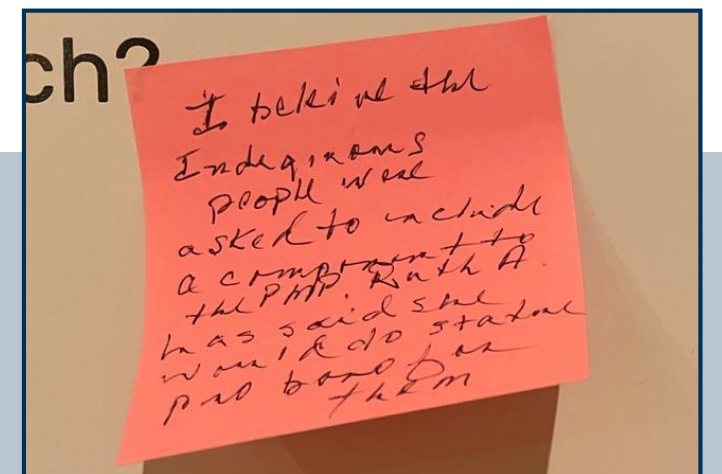 ch?
I beleive the
Indeginous
people were
asked to include
a component to
the PMP. Ruth A.
has said she
would do statue
pro bono for
them